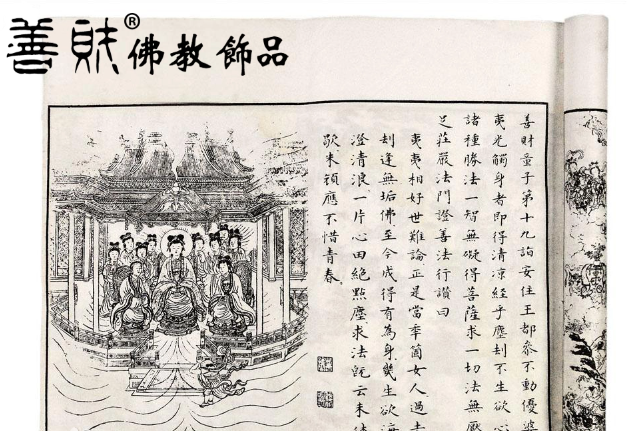 善財®佛教飾品
善財童子第十九詣安住王都叅不動優婆
夷光觸身者即得清凉經乎塵刦不生欲心
諸種勝法一智無礙得菩薩求一切法無厭
足莊嚴法門證善法行讚曰
夷夷相好世難論正是當年箇女人過去
刦逢無垢佛至今成得有為身幾生欲海
澄清浪一片心田絕點塵求法旣云未
歇来頻應不惜青春